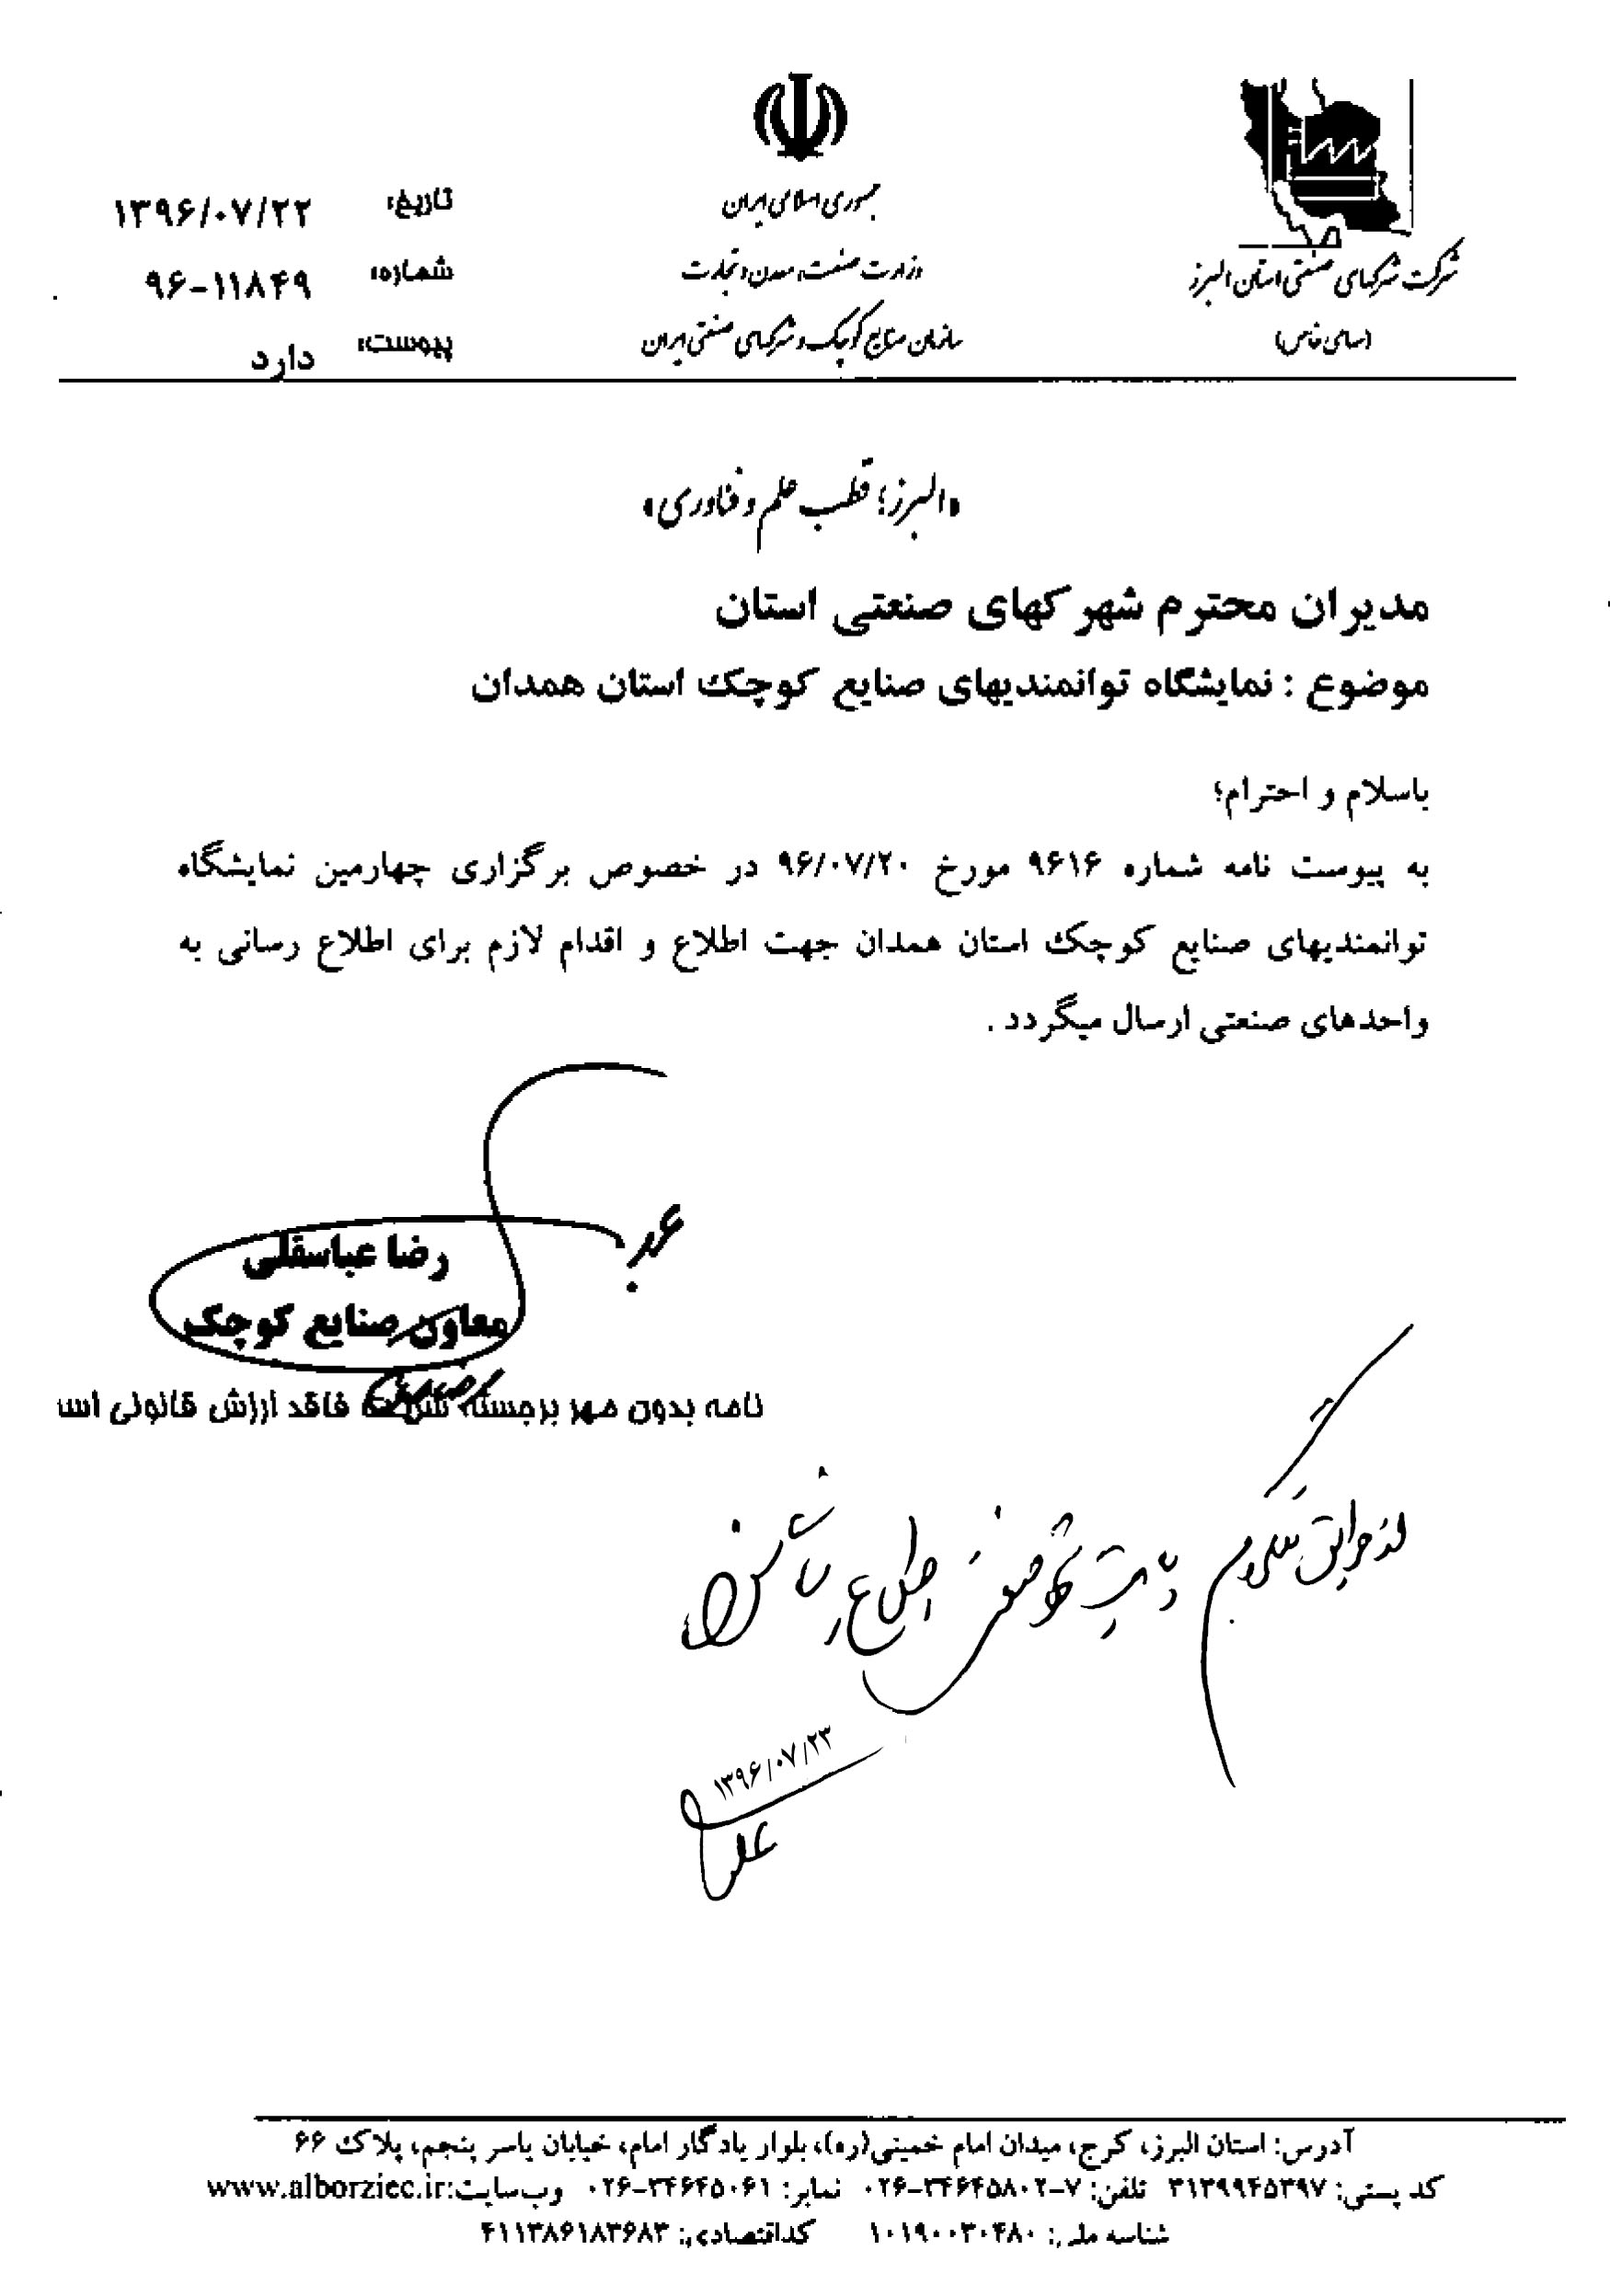 جمهوری اسلامی ایران
وزارت صنعت، معدن و تجارت
سازمان صنایع کوچک و شهرکهای صنعتی ایران
شرکت شهرکهای صنعتی استان البرز
(سهامی خاص)
تاریخ: ۱۳۹۶/۰۷/۲۲
شماره: ۹۶-۱۱۸۴۹
پیوست: دارد
«البرز؛ قطب علم و فناوری»
مدیران محترم شهرکهای صنعتی استان
موضوع : نمایشگاه توانمندیهای صنایع کوچک استان همدان
باسلام و احترام؛
به پیوست نامه شماره ۹۶۱۶ مورخ ۹۶/۰۷/۲۰ در خصوص برگزاری چهارمین نمایشگاه
توانمندیهای صنایع کوچک استان همدان جهت اطلاع و اقدام لازم برای اطلاع رسانی به
واحدهای صنعتی ارسال میگردد .
رضا عباسقلی
معاون صنایع کوچک
نامه بدون مهر برجسته شرکت فاقد ارزش قانونی اس
اطلاع
۱۳۹۶/۰۷/۲۳
آدرس: استان البرز، کرج، میدان امام خمینی(ره)، بلوار یادگار امام، خیابان یاسر پنجم، پلاک ۶۶
کد پستی: ۳۱۳۹۹۴۵۳۹۷ تلفن: ۷-۰۲۶-۳۴۶۴۵۸۰۲ نمابر: ۰۲۶-۳۴۶۴۵۰۶۱ وب‌سایت:www.alborziec.ir
شناسه ملی: ۱۰۱۹۰۰۳۰۴۸۰ کداقتصادی: ۴۱۱۳۸۶۱۸۳۶۸۳